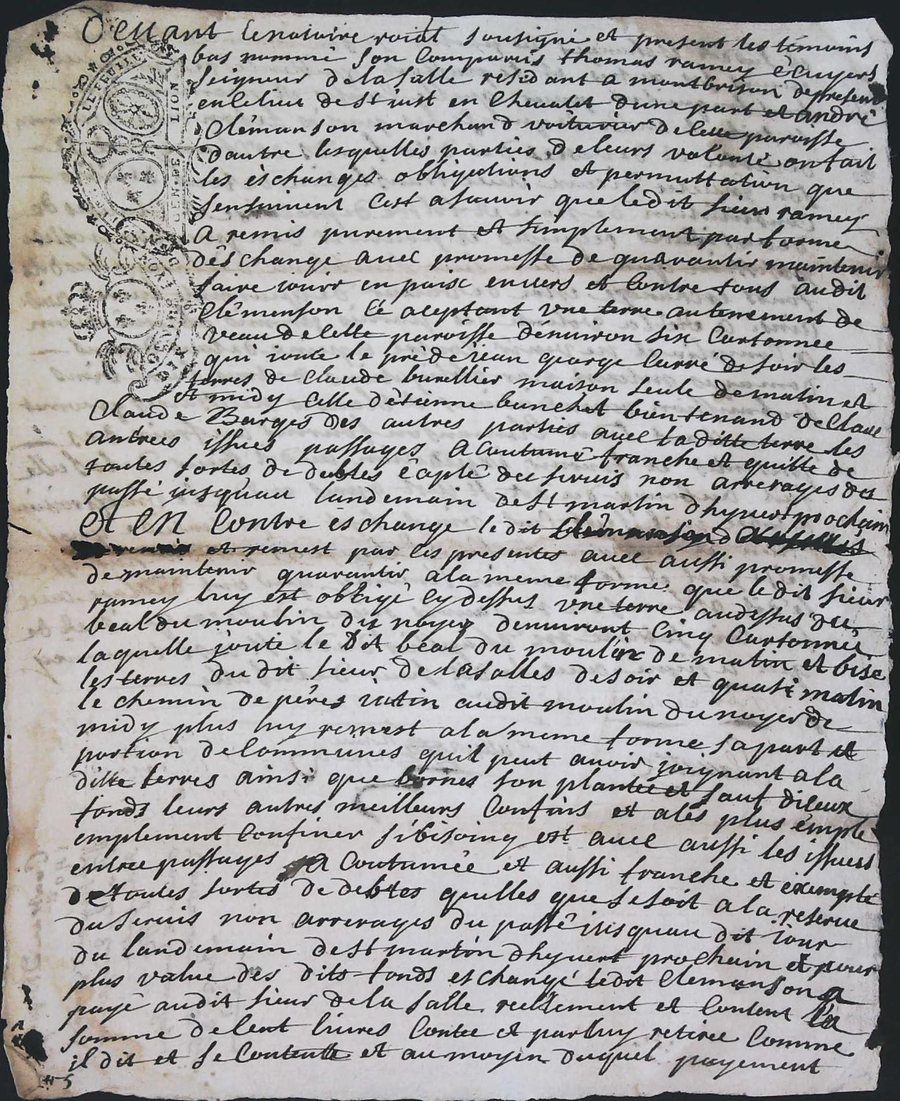 Devant le notaire roial sousigné et present les témoins
bas nommé son comparus thomas ramey écuyers
seigneur de la salle residant a montbrison de present
en ce lieu de st just en chevalet d'une part et andré
Clémanson marchand voiturier de cette paroisse
d'autre lesquelles parties de leurs volonté on fait
les éschanges obligations et permuttation que
sensuiuent C'est a sauoir que le dit sieur ramey
A remis purement et simplement par forme
déschange auec promesse de guarantir maintenir
faire iouir en paisc enuers et Contre tous audit
Clémenson Cé aceptant vne terre au terrement de
veau de cette paroisse d'enuiron six Cartonnée
qui ioute le pré de iean george Carré de soir les
terres de claude burellier maison seule de matin et
et midy celle d'étienne bunchet bientenand de
Claude Barges des autres parties auec la ditte terre les
antrées issues passages ACoutumé franche et quitte de
toutes sortes de debtes éxapté des seruis non arrerages des
passé jusqu'au landemain de St martin dhyuer prochain
Et en Contre éschange le dit
et remest par les presentes auec aussi promesse
de maintenir guarantir a la meme forme que le dit sieur
ramey luy est obligé cy dessus vne terre au dessus du
béal du moulin du noyer denuiront Cinq Cartonnée
laquelle joute le dit béal du moulin de matin et bise
les terres du dit sieur de la salles de soir et quasi matin
le chemin de audit moulin du noyer de
midy plus luy remest a la meme forme sa part et
portion de Communes quil peut auoir joignant a la
ditte terres ainsi que bornes son plantée et sauf diceux
fonds leurs autres meilleurs Confins et a les plus emple
emplement Confiner si bisoing est auec aussi les issues
entrée passages ACoutumée et aussi franche et exempte
de toutes sortes de debtes quelles que se soit a la reserue
du seruis non arrerages du passé iusquau dit iour
du landemain de St martin dhyuert prochain et pour
plus value des dits fonds eschangé le dit Clemanson a
payé audit sieur de la salle reellement et Contant la
somme de Cent liures Contée et par luy retirée Comme
il dit et se Contente et au moyen duquel payement